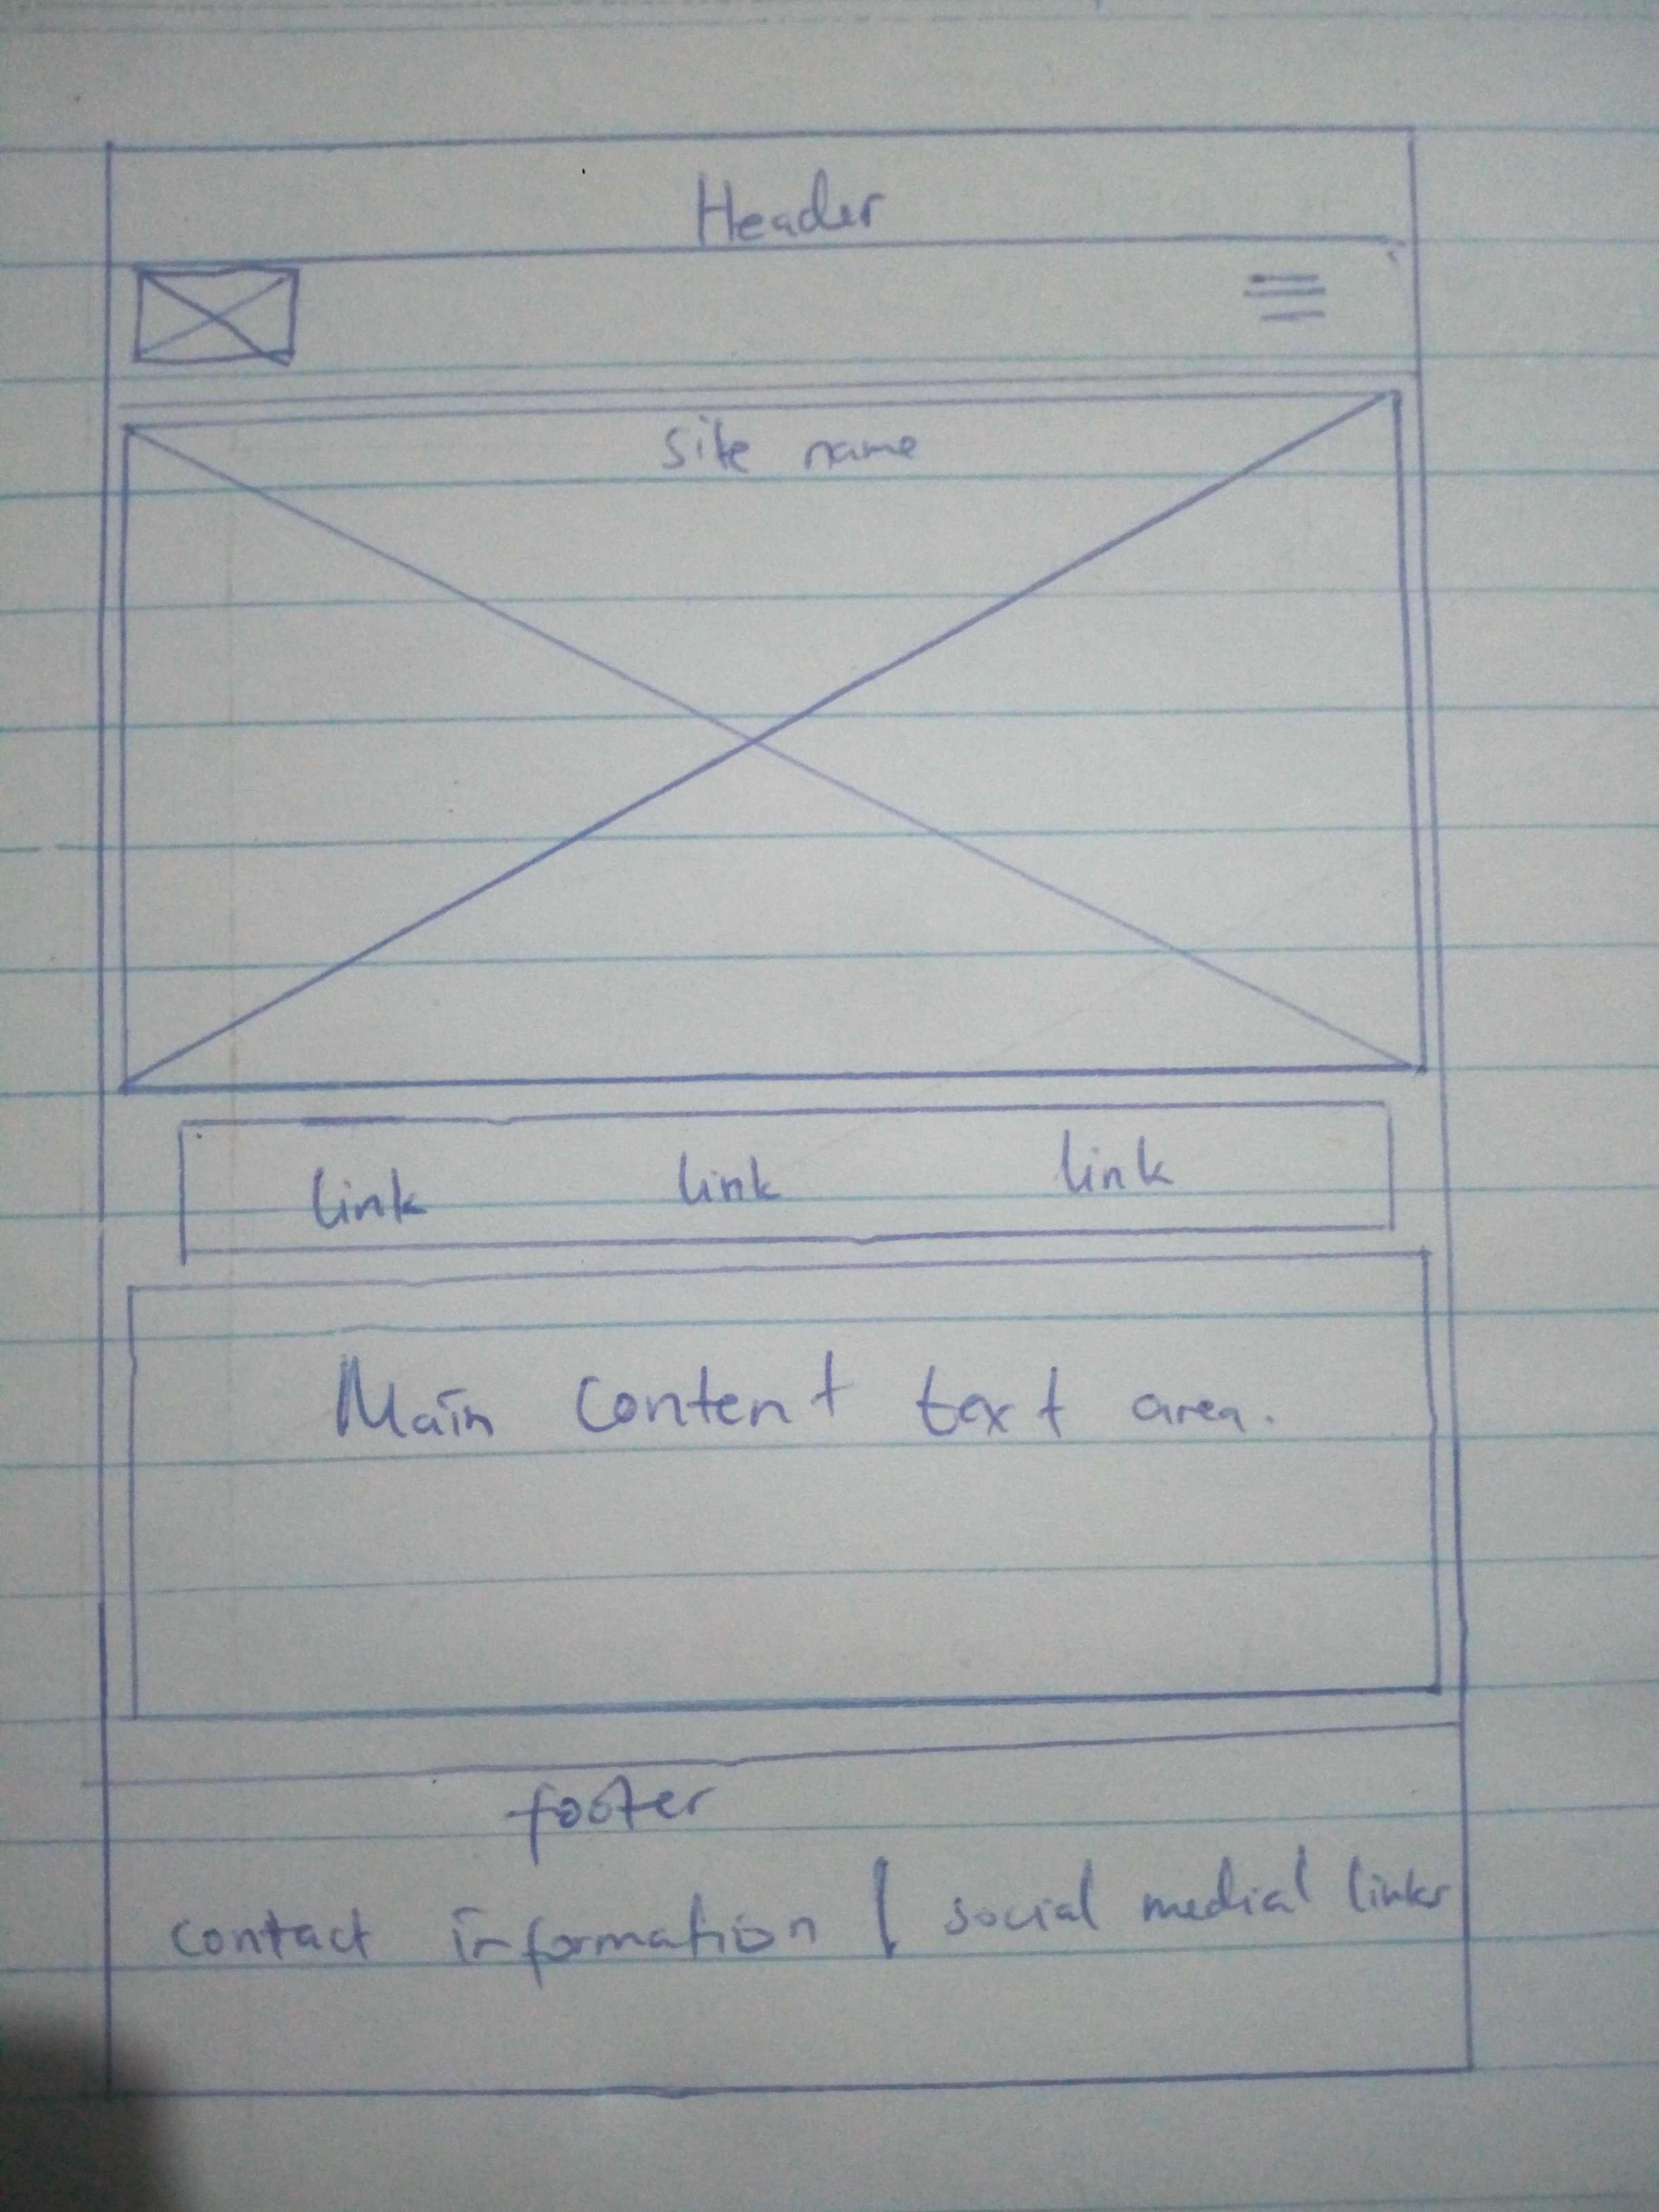 Header
site name
link link link
Main content text area.
footer
contact information | social medial links